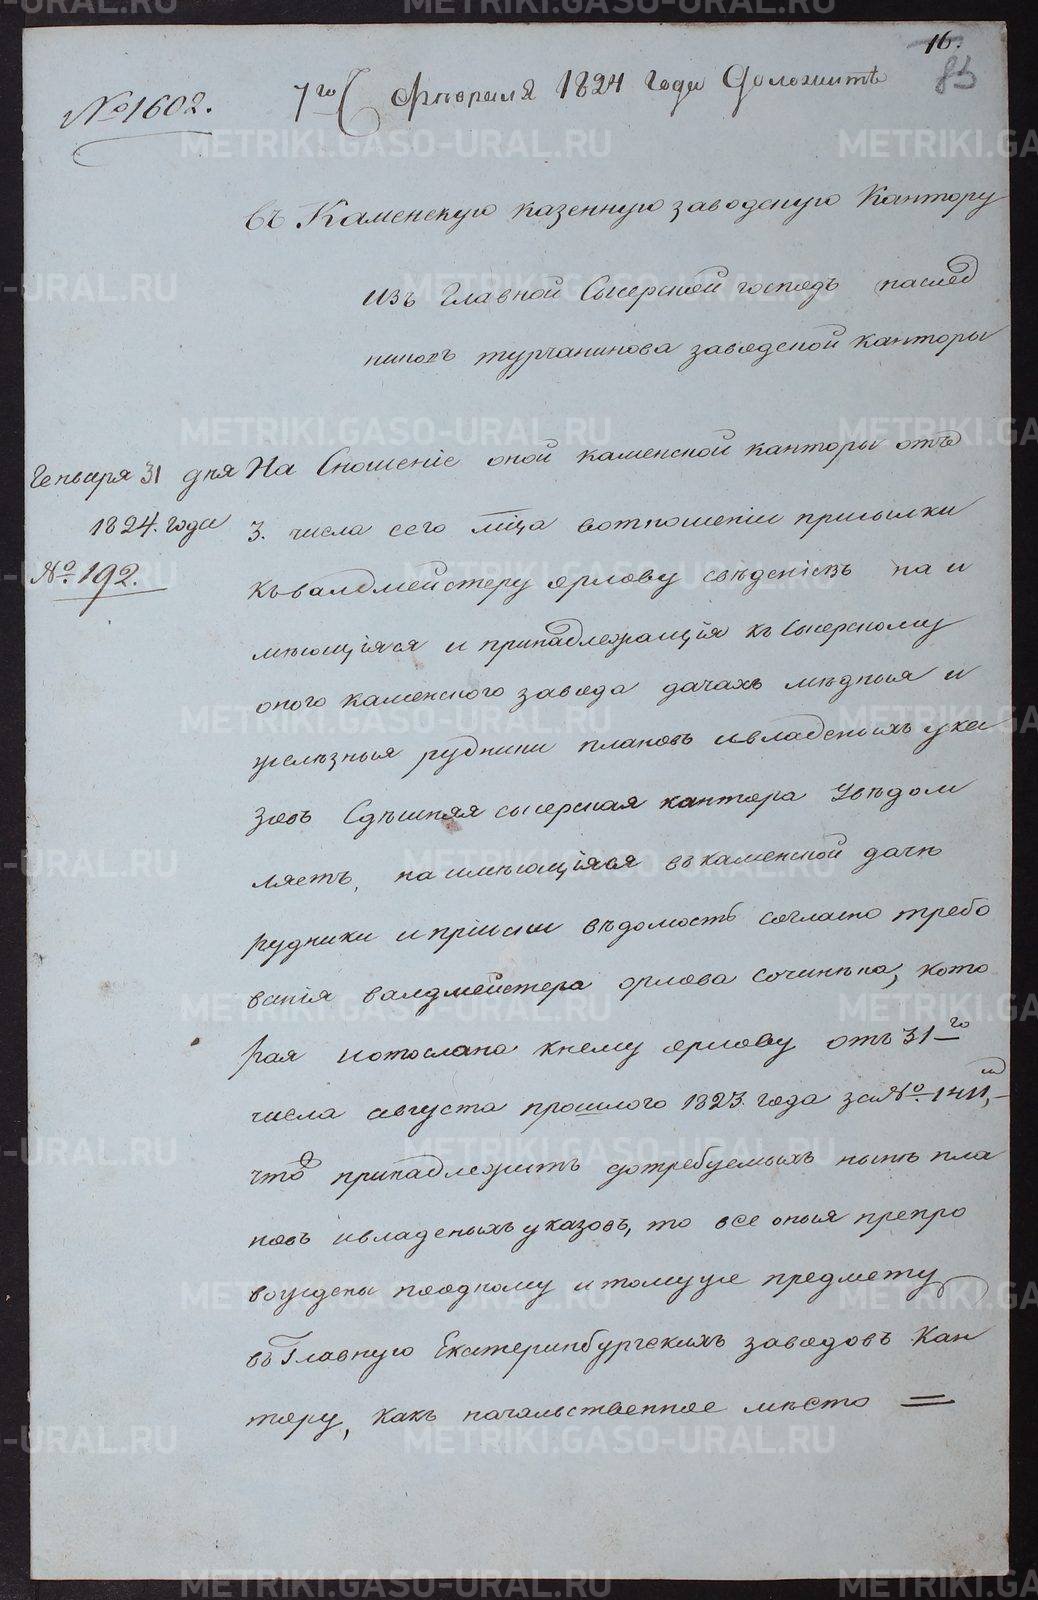 16.
83
№ 1602.
7го февраля 1824 года Доложить
въ Каменскую казенную заводскую Кантору
изъ Главной Сысерской господъ наслед
никовъ турчанинова заводской канторы
Генваря 31 дня
1824. года
№ 192.
На Сношеніе оной каменской канторы отъ
3. числа сего мца вотношеніи присылки
квалдмейстеру орлову сведеніевъ на и
меющіяся и принадлежащія къ Сысерскому
оного каменского завода дачахъ медныя и
железныя рудники плановъ ивладеныхъ ука
зовъ Сдешняя сысерская кантора Уведом
ляетъ, на имеющіяся въ каменской даче
рудники и пріиски ведомость согласно требо
ванія валдмейстера орлова сочинена, кото
рая иотослана кнему орлову отъ 31го
числа августа прошлого 1823. года за №
что принадлежитъ дотребуемыхъ ныне пла
новъ ивладеныхъ указовъ, то все оныя препро
вождены поодному итомуже предмету
въ Главную Екатеринбургскихъ заводовъ Кан
тору, какъ начальственное место =
METRIKI.GASO-URAL.RU